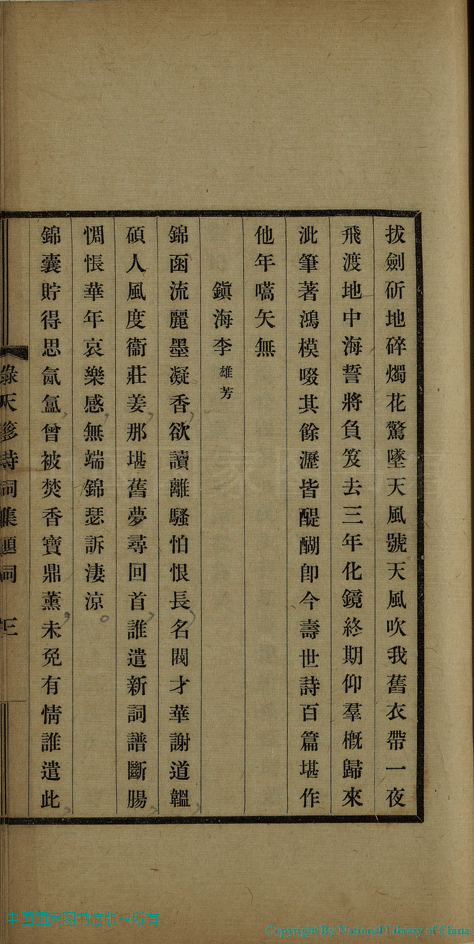 拔劍斫地碎燭花驚墜天風號天風吹我舊衣帶一夜
飛渡地中海誓將負笈去三年化鏡終期仰羣概歸來
泚筆著鴻模啜其餘瀝皆醍醐卽今壽世詩百篇堪作
他年嚆矢無
鎮海李雄芳
錦函流麗墨凝香欲讀離騷怕恨長名閥才華謝道韞
碩人風度衞莊姜那堪舊夢尋回首誰遣新詞譜斷腸
惆悵華年哀樂感無端錦瑟訴淒涼
錦囊貯得思氤氳曾被焚香寶鼎薰未免有情誰遣此
天 詩詞集題詞 三
Copyright By National Library of China